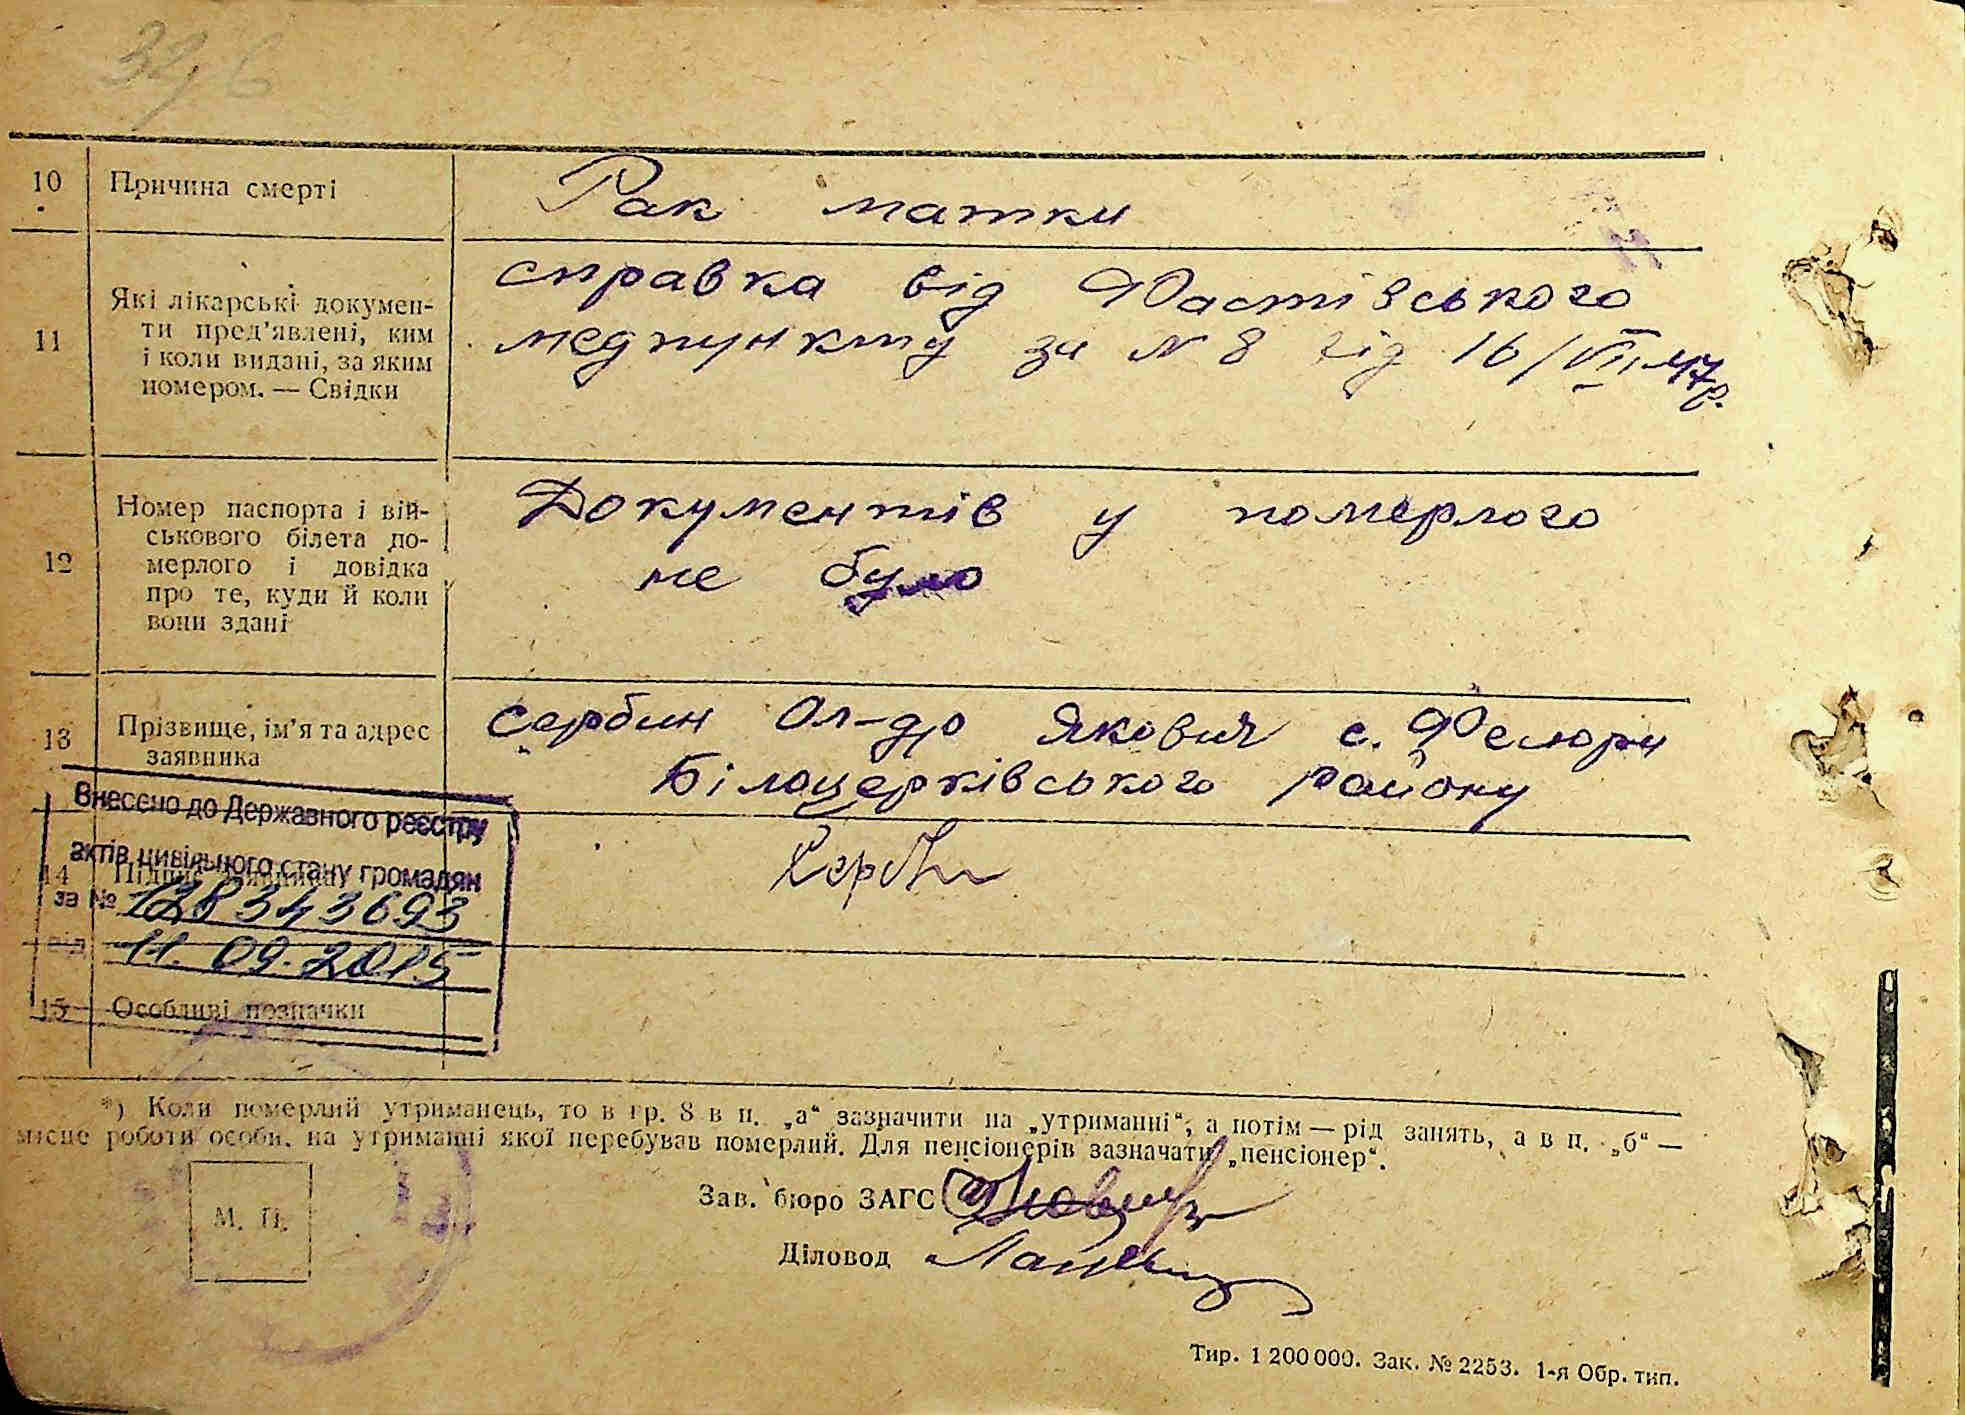 10 Причина смерті Рак матки
11 Які лікарські докумен-
ти пред'явлені, ким
і коли видані, за яким
номером. — Свідки
справка від Фастівського
медпункту за N 8 від 16/VII-47р.
12 Номер паспорта і вій-
ськового білета по-
мерлого і довідка
про те, куди й коли
вони здані
Документів у померлого
не було
13 Прізвище, ім'я та адрес
заявника
Сербин Ол-др Якович с. Фелюри
Білоцерківського району
Внесено до Державного реєстру
актів цивільного стану громадян
14 Підпис заявника
за №
від 11.09.2015
15 Особливі позначки
*) Коли померлий утриманець, то в гр. 8 в п. „а“ зазначити на „утриманні“, а потім — рід занять, а в п. „б“ —
місце роботи особи, на утриманні якої перебував померлий. Для пенсіонерів зазначати „пенсіонер“.
М. П.
Зав. бюро ЗАГС
Діловод
Тир. 1 200 000. Зак. № 2253. 1-я Обр. тип.